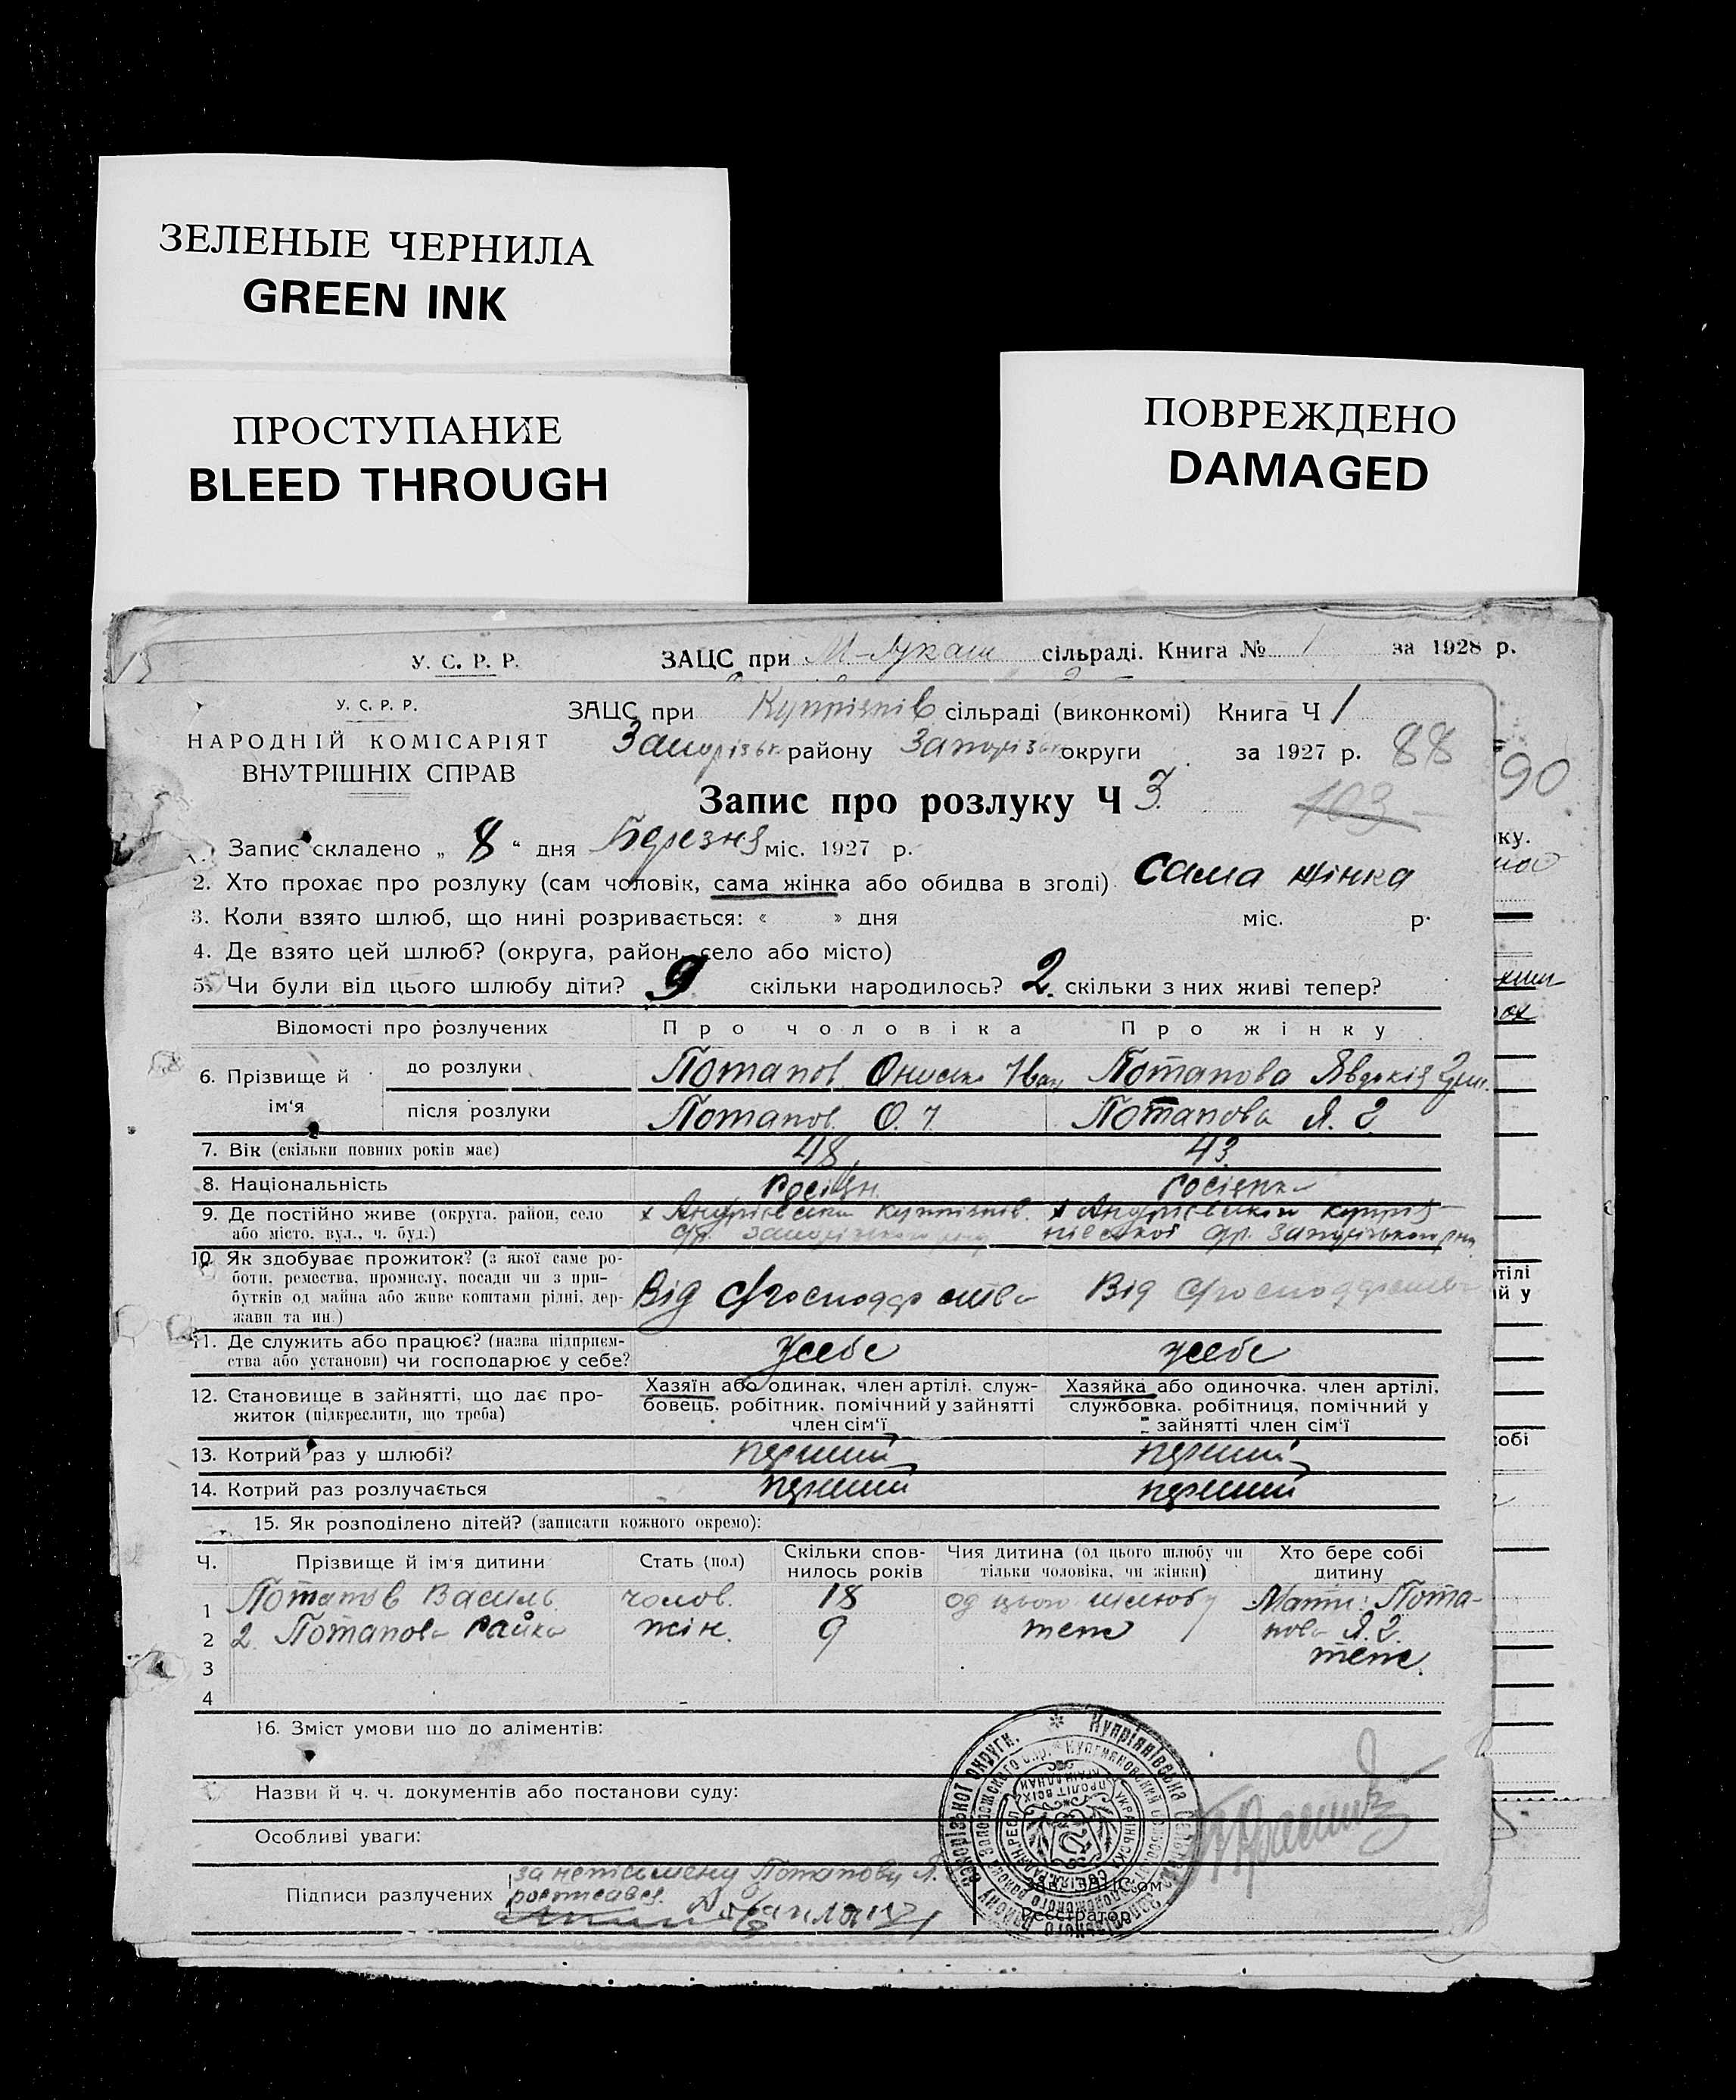 ЗЕЛЕНЫЕ ЧЕРНИЛА
GREEN INK
ПРОСТУПАНИЕ
BLEED THROUGH
ПОВРЕЖДЕНО
DAMAGED
У. С. Р. Р. ЗАЦС при М-Лукаш сільраді. Книга № 1 за 1928 р.
У. С. Р. Р.
НАРОДНІЙ КОМІСАРІЯТ
ВНУТРІШНІХ СПРАВ
ЗАЦС при Купріянів сільраді (виконкомі) Книга Ч 1
Запорізьк району Запорізьк округи за 1927 р. 88
90
Запис про розлуку Ч 3.
103
1. Запис складено „ 8 “ дня Березня міс. 1927 р.
2. Хто прохає про розлуку (сам чоловік, сама жінка або обидва в згоді) Сама жінка
3. Коли взято шлюб, що нині розривається: « » дня міс. р.
4. Де взято цей шлюб? (округа, район, село або місто)
5. Чи були від цього шлюбу діти? 9 скільки народилось? 2. скільки з них живі тепер?
Відомості про розлучених Про чоловіка Про жінку
6. Прізвище й ім'я до розлуки Потапов Онисько Іван Потапова Явдокія
після розлуки Потапов О. І Потапова Я. Г
7. Вік (скільки повних років має) 48 43.
8. Національність росіян. росіянка
9. Де постійно живе (округа, район, село або місто, вул., ч. буд.)
х Андріївськи Купріянів. с/р. Запорізького рну
х Андріївський Купріянівської с/р. Запорізького рну
10. Як здобуває прожиток? (з якої саме роботи, ремества, промислу, посади чи з прибутків од майна або живе коштами рідні, держави та ин.)
Від с/господарства Від с/господарства
11. Де служить або працює? (назва підприємства або установи) чи господарює у себе? Усебе усебе
12. Становище в зайнятті, що дає прожиток (підкреслити, що треба)
Хазяїн або одинак, член артілі, службовець, робітник, помічний у зайнятті член сім'ї
Хазяйка або одиночка, член артілі, службовка, робітниця, помічний у зайнятті член сім'ї
13. Котрий раз у шлюбі? перший перший
14. Котрий раз розлучається перший перший
15. Як розподілено дітей? (записати кожного окремо):
Ч. Прізвище й ім'я дитини Стать (пол) Скільки сповнилось років Чия дитина (од цього шлюбу чи тільки чоловіка, чи жінки) Хто бере собі дитину
1 Потапов Василь чолов. 18 од цього шлюбу Мати: Потапова Я. Г.
2 2. Потапова Райка жін. 9 теж теж.
3
4
16. Зміст умови що до аліментів:
Назви й ч. ч. документів або постанови суду:
Особливі уваги:
Підписи разлучених за неписьмену Потапову Я.
розписавсь
Зав. ЗАЦС'ом
Реєстратор